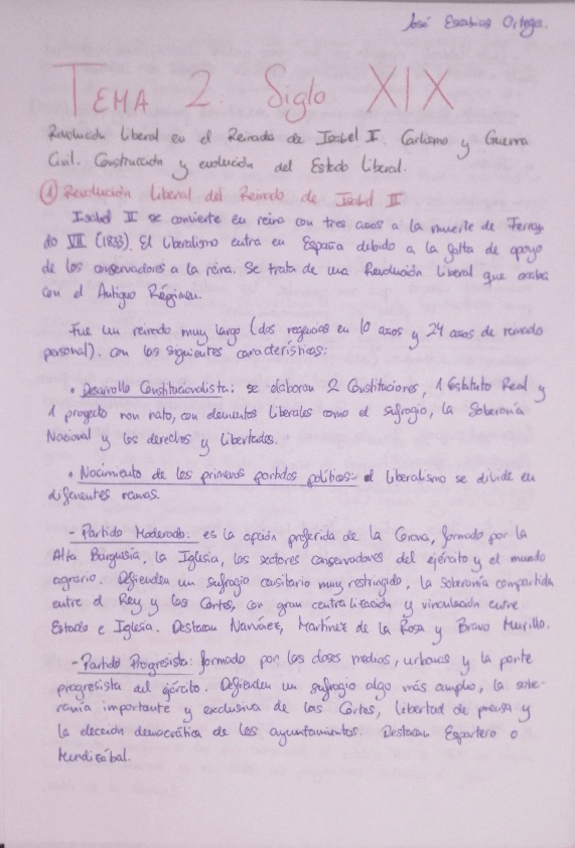 José Escabias Ortega.
TEMA 2. Siglo XIX
Revolución liberal en el Reinado de Isabel II. Carlismo y Guerra
Civil. Construcción y evolución del Estado Liberal.
① Revolución Liberal del Reinado de Isabel II
Isabel II se convierte en reina con tres años a la muerte de Fernan
do VII (1833). El liberalismo entra en España debido a la falta de apoyo
de los conservadores a la reina. Se trata de una Revolución Liberal que acaba
con el Antiguo Régimen.
Fue un reinado muy largo (dos regencias en 10 años y 24 años de reinado
personal). con las siguientes características:
• Desarrollo Constitucionalista: se elaboran 2 Constituciones, 1 Estatuto Real y
1 proyecto non nato, con elementos liberales como el sufragio, la Soberanía
Nacional y los derechos y libertades.
• Nacimiento de los primeros partidos políticos: el liberalismo se divide en
diferentes ramas.
- Partido Moderado: es la opción preferida de la Corona, formado por la
Alta Burguesía, la Iglesia, los sectores conservadores del ejército y el mundo
agrario. Defienden un sufragio censitario muy restringido, la soberanía compartida
entre el Rey y las Cortes, con gran centralización y vinculación entre
Estado e Iglesia. Destacan Narváez, Martínez de la Rosa y Bravo Murillo.
- Partido Progresista: formado por las clases medias, urbanas y la parte
progresista del ejército. Defienden un sufragio algo más amplio, la sobe-
ranía importante y exclusiva de las Cortes, libertad de prensa y
la elección democrática de los ayuntamientos. Destacan Espartero o
Mendizábal.